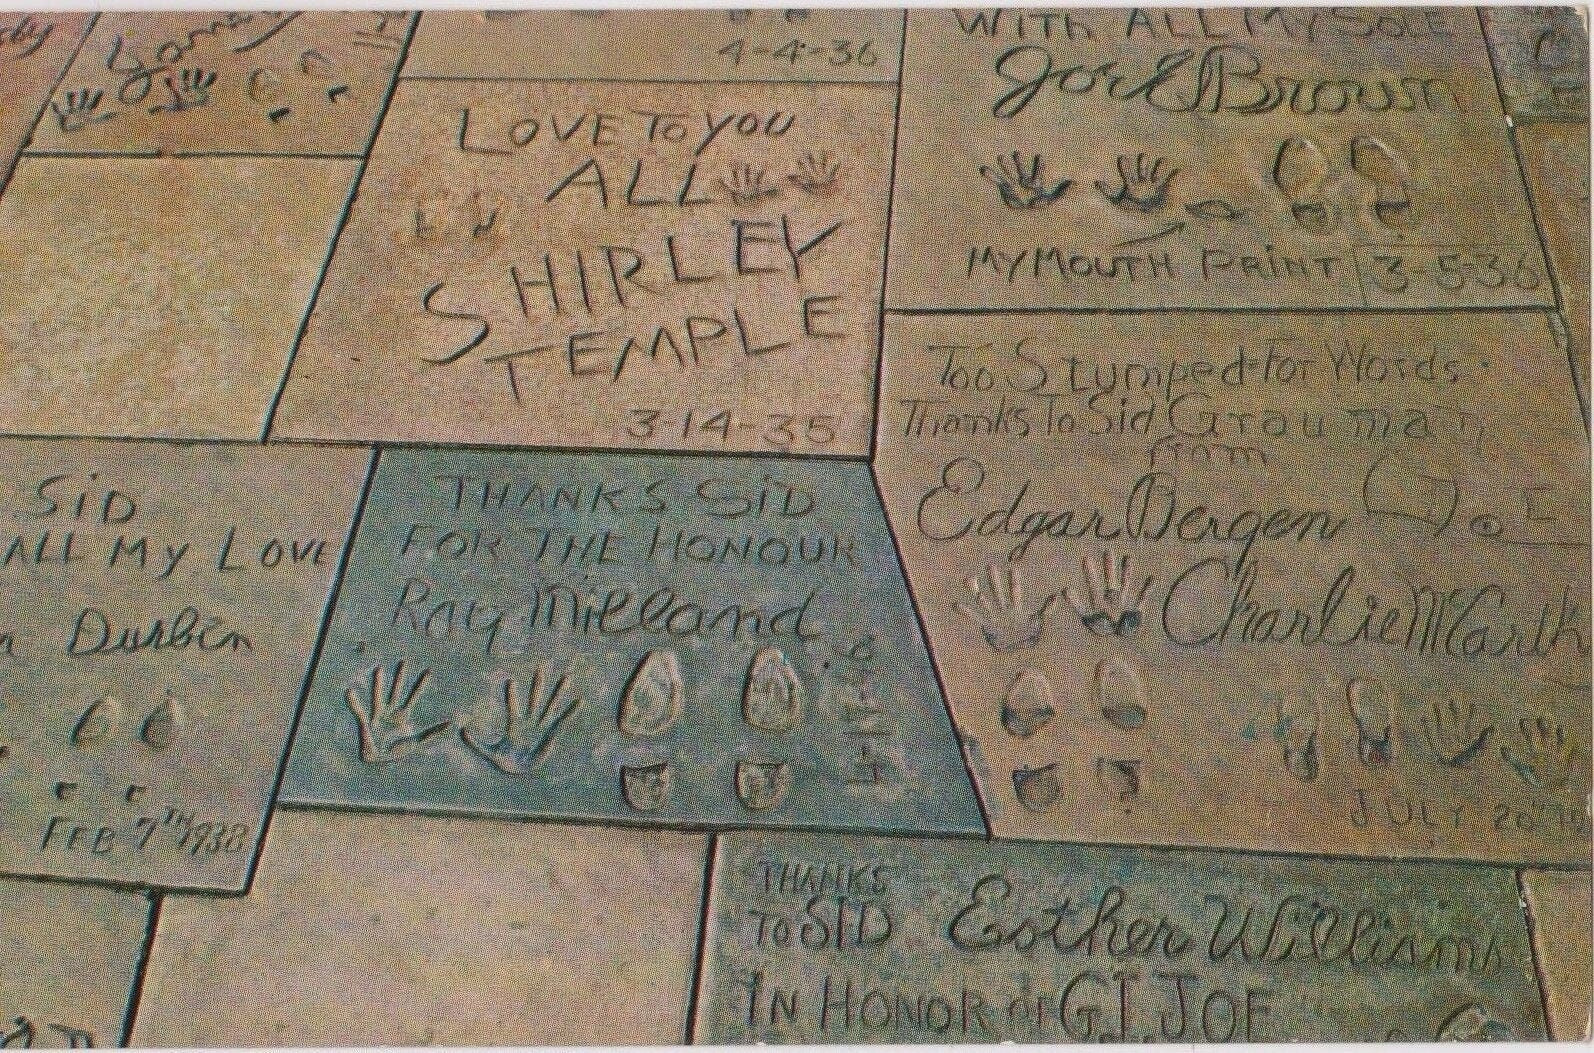 4-4-36
LOVE TO YOU
ALL
SHIRLEY
TEMPLE
3-14-35
WITH ALL MY SOLE
Joe E Brown
MY MOUTH PRINT 3-5-36
SID
ALL MY LOVE
Durbin
FEB 7TH 1938
THANKS SID
FOR THE HONOUR
Ray Milland
Too Stumped For Words.
Thanks To Sid Grauman
from
Edgar Bergen
Charlie McCarth
JULY 20
THANKS
TO SID
Esther Williams
IN HONOR OF G.I. JOE